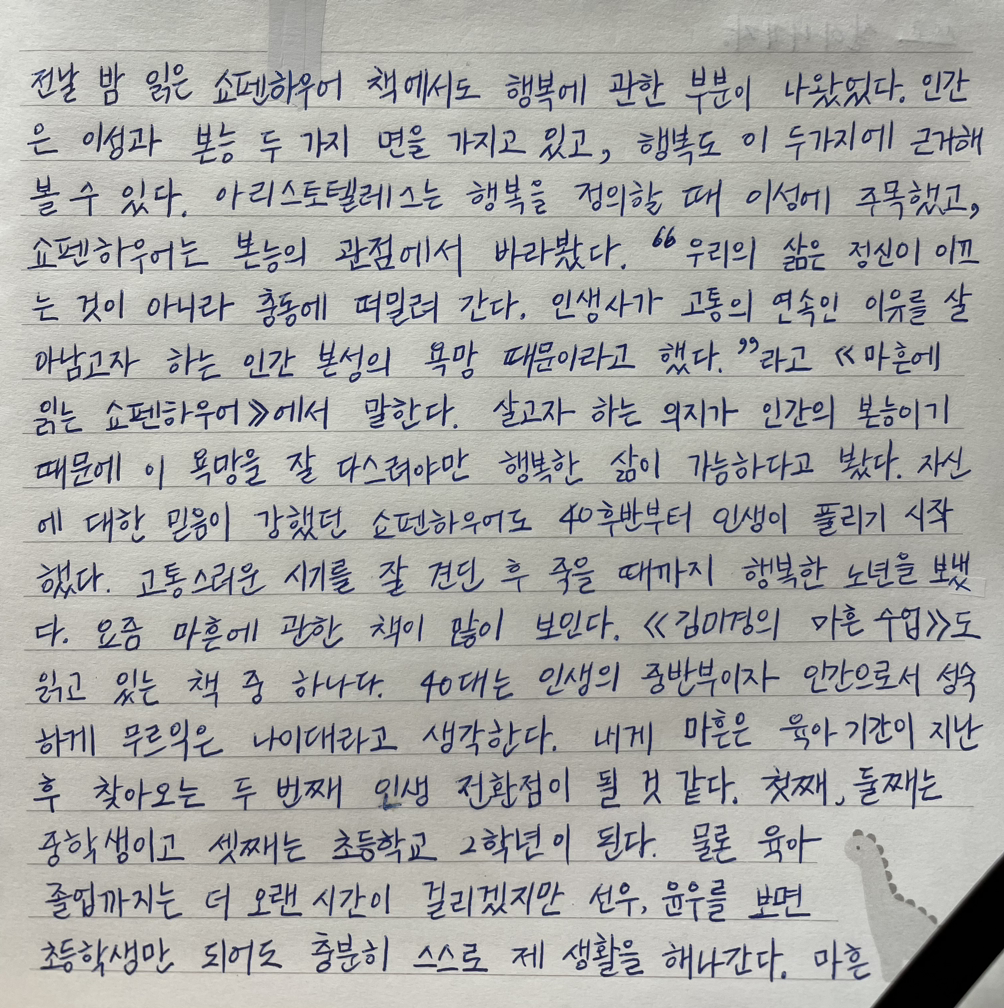 전날 밤 읽은 쇼펜하우어 책에서도 행복에 관한 부분이 나왔었다. 인간
은 이성과 본능 두 가지 면을 가지고 있고, 행복도 이 두가지에 근거해
볼 수 있다. 아리스토텔레스는 행복을 정의할 때 이성에 주목했고,
쇼펜하우어는 본능의 관점에서 바라봤다. “우리의 삶은 정신이 이끄
는 것이 아니라 충동에 떠밀려 간다. 인생사가 고통의 연속인 이유를 살
아남고자 하는 인간 본성의 욕망 때문이라고 했다.”라고 《마흔에
읽는 쇼펜하우어》에서 말한다. 살고자 하는 의지가 인간의 본능이기
때문에 이 욕망을 잘 다스려야만 행복한 삶이 가능하다고 봤다. 자신
에 대한 믿음이 강했던 쇼펜하우어도 40후반부터 인생이 풀리기 시작
했다. 고통스러운 시기를 잘 견딘 후 죽을 때까지 행복한 노년을 보냈
다. 요즘 마흔에 관한 책이 많이 보인다. 《김미경의 마흔 수업》도
읽고 있는 책 중 하나다. 40대는 인생의 중반부이자 인간으로서 성숙
하게 무르익은 나이대라고 생각한다. 내게 마흔은 육아 기간이 지난
후 찾아오는 두 번째 인생 전환점이 될 것 같다. 첫째, 둘째는
중학생이고 셋째는 초등학교 2학년이 된다. 물론 육아
졸업까지는 더 오랜 시간이 걸리겠지만 선우, 윤우를 보면
초등학생만 되어도 충분히 스스로 제 생활을 해나간다. 마흔